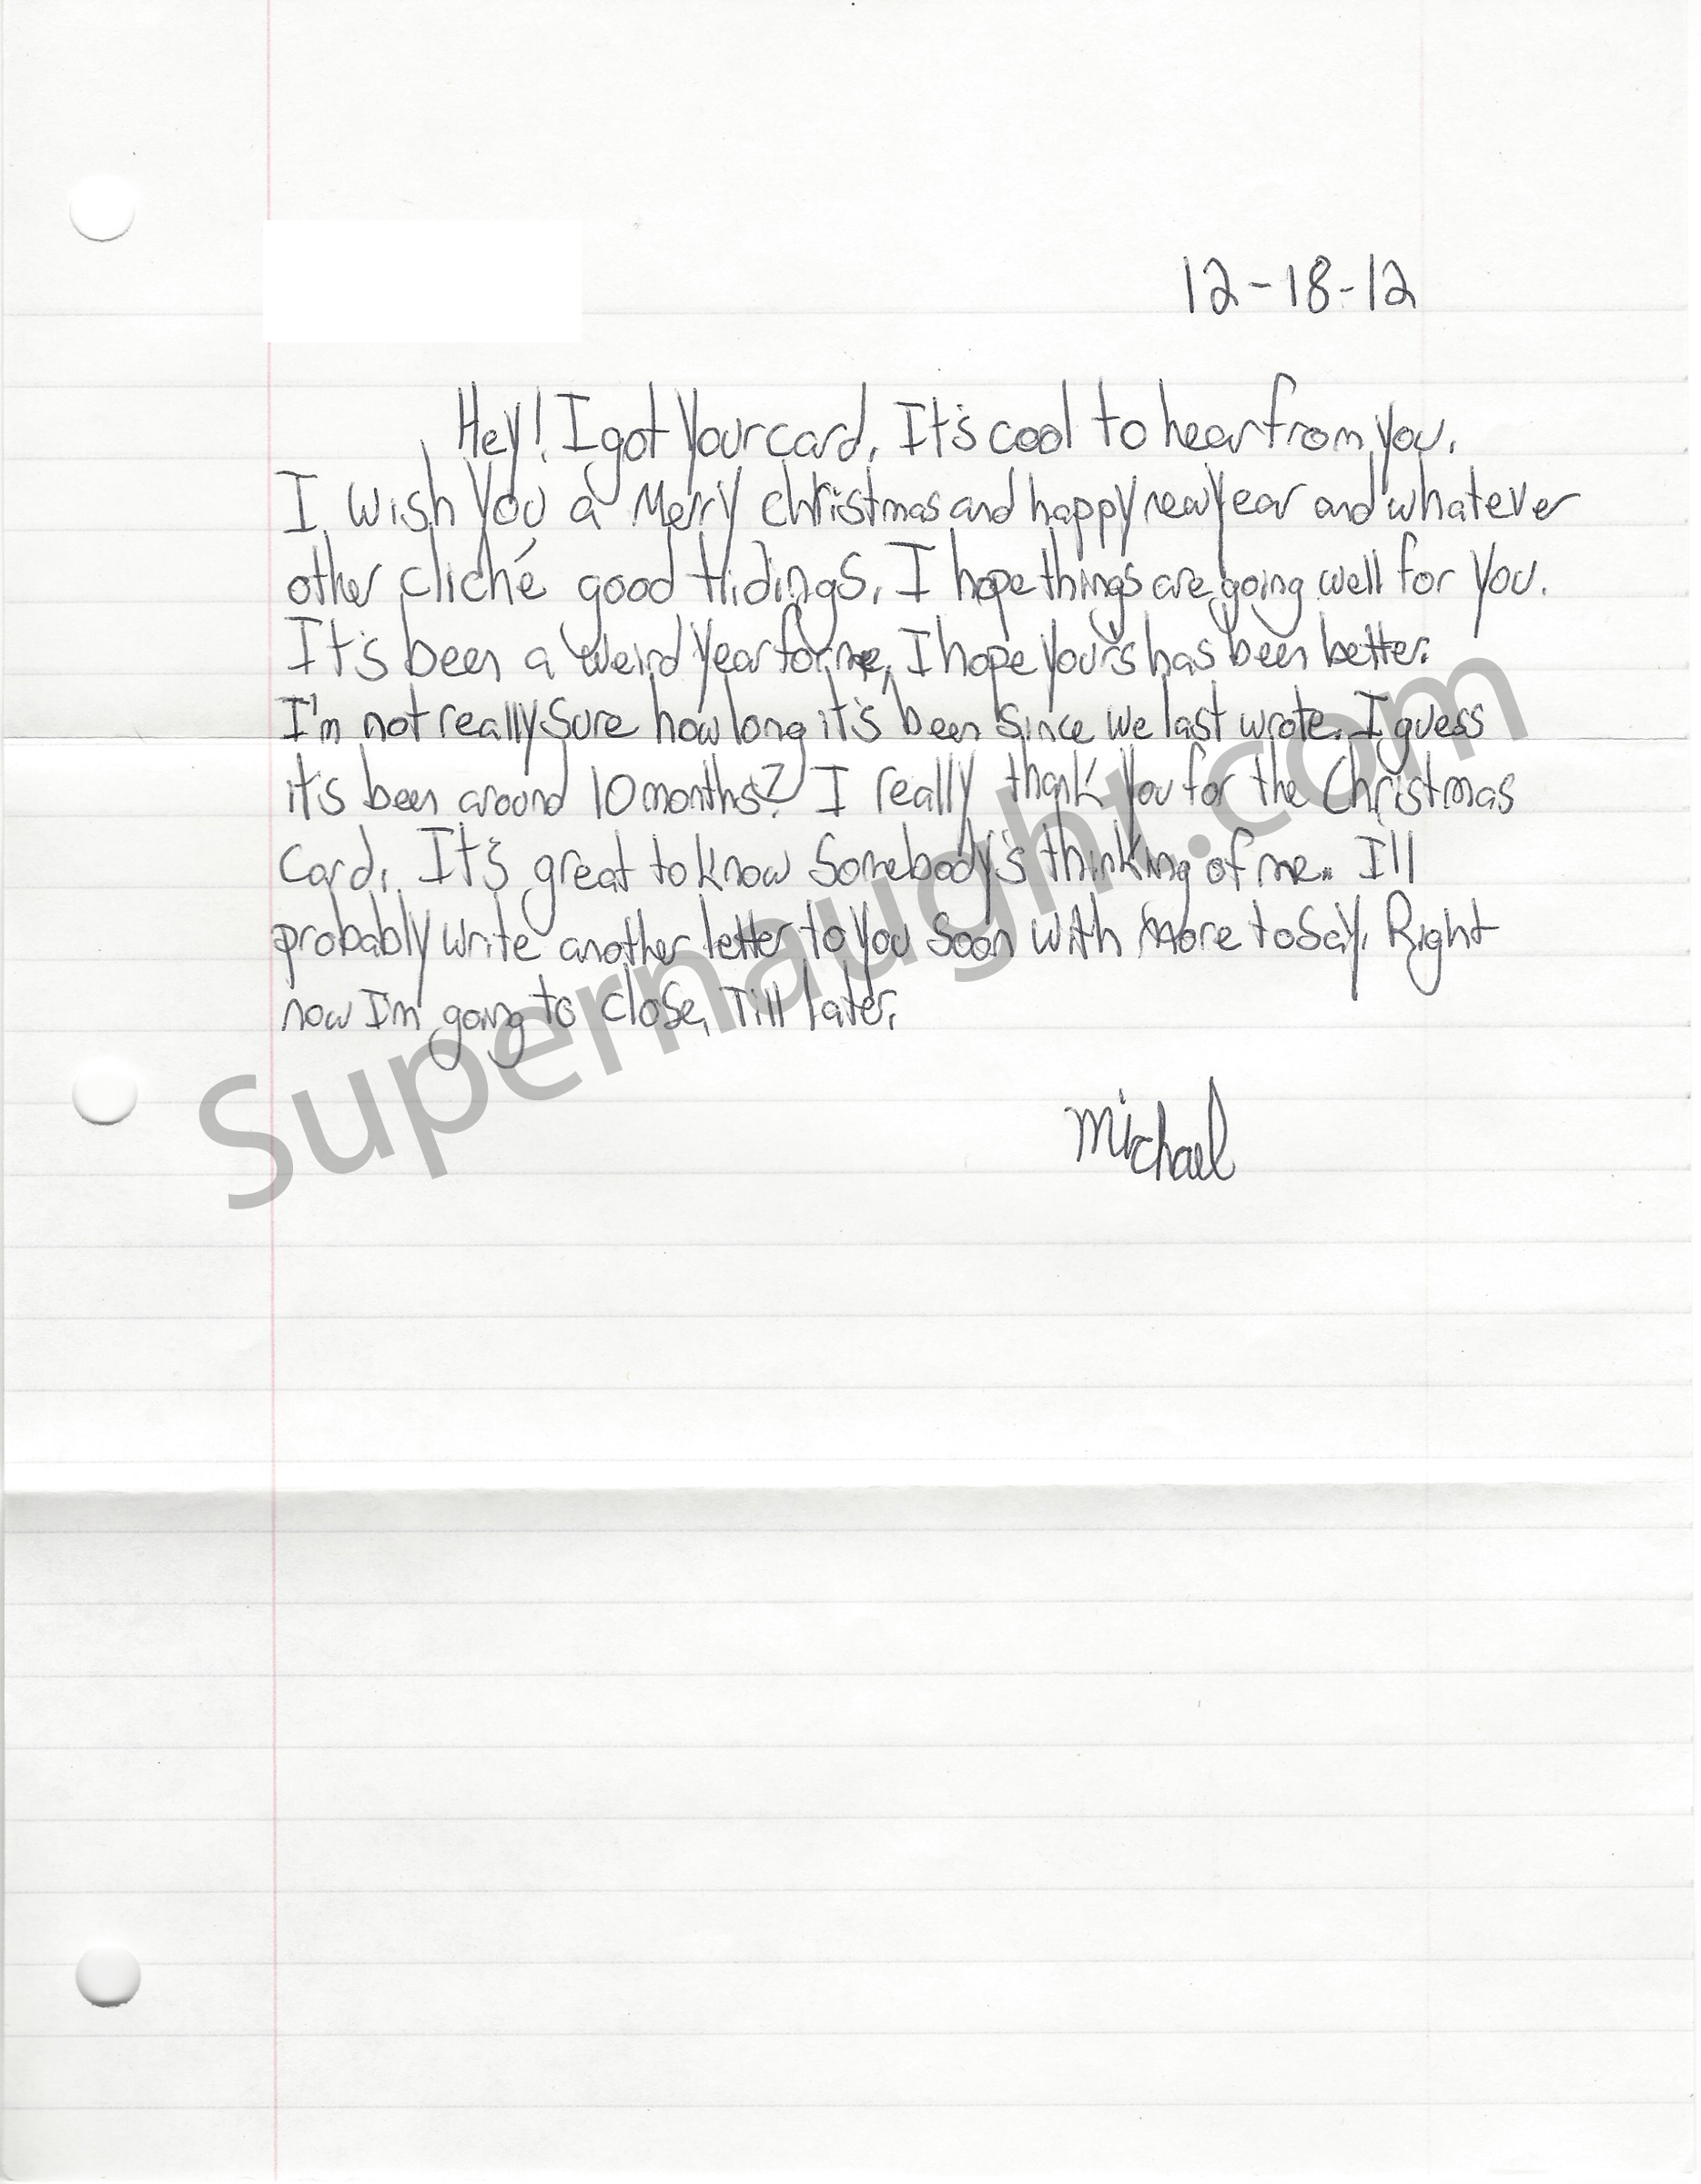 12-18-12
Hey! I got your card. It's cool to hear from you.
I wish you a Merry Christmas and happy new year and whatever
other cliché good tidings. I hope things are going well for you.
It's been a weird year for me, I hope yours has been better.
I'm not really sure how long it's been since we last wrote. I guess
it's been around 10 months? I really thank you for the Christmas
card. It's great to know somebody's thinking of me. I'll
probably write another letter to you soon with more to say. Right
now I'm going to close, Till later.
Michael
Supernaught.com